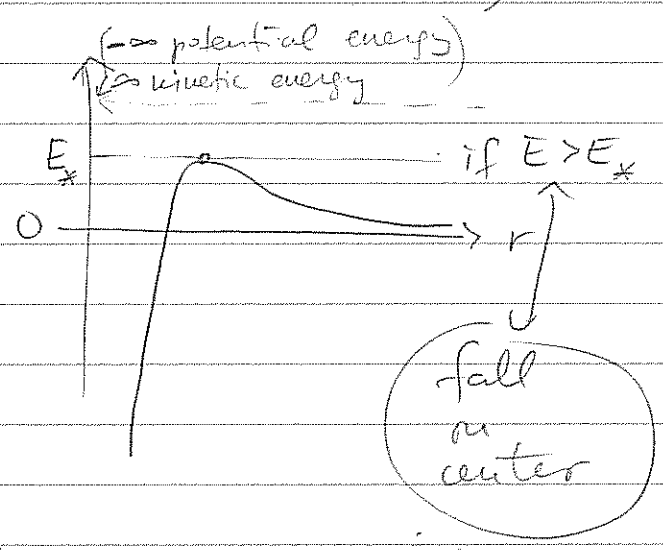 (-∞ potential energy)
∞ kinetic energy
E* if E > E*
0
r
fall
on
center